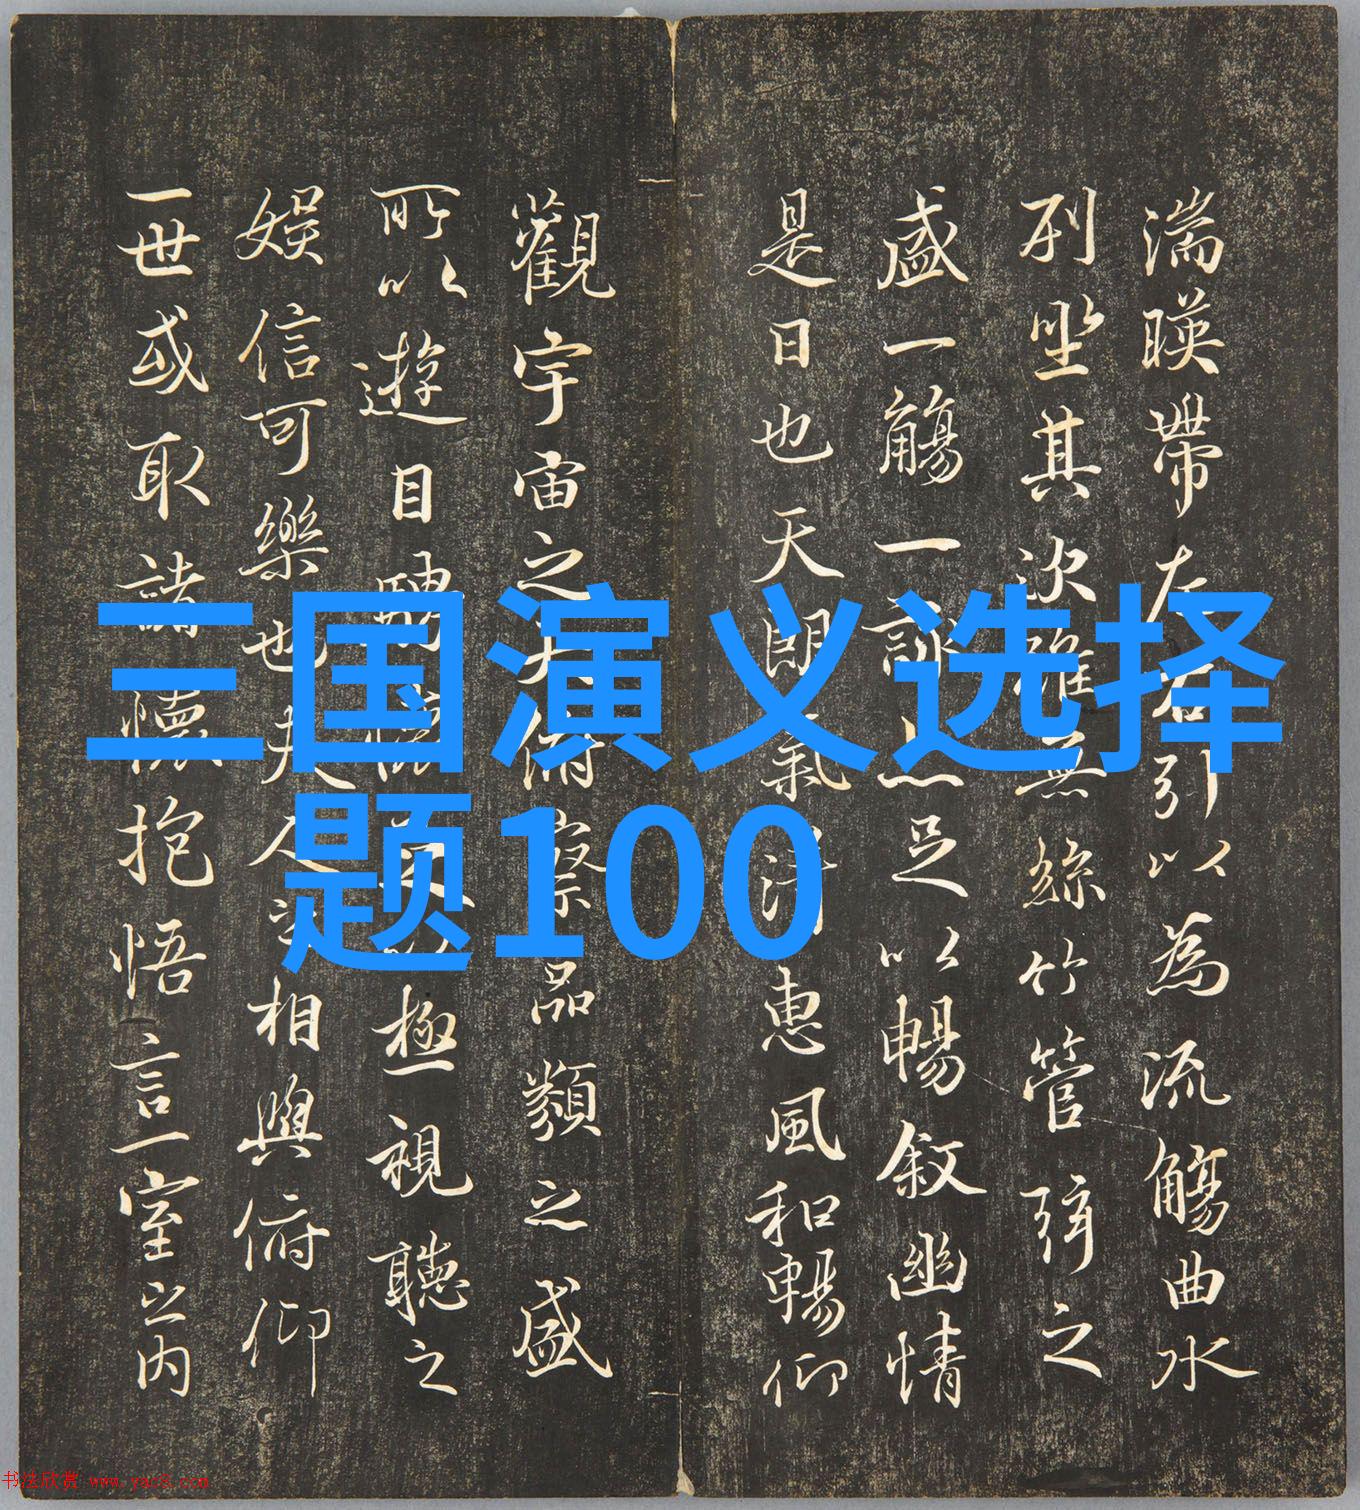 三国演义选择
题100
湍暎帶左右引以為流觴曲水
列坐其次雖無絲竹管弦之
盛一觴一詠亦足以暢敘幽情
是日也天朗氣清惠風和暢仰
觀宇宙之大俯察品類之盛
所以遊目騁懷足以極視聽之
娛信可樂也夫人之相與俯仰
一世或取諸懷抱悟言一室之内
书法欣赏 www.yac8.com